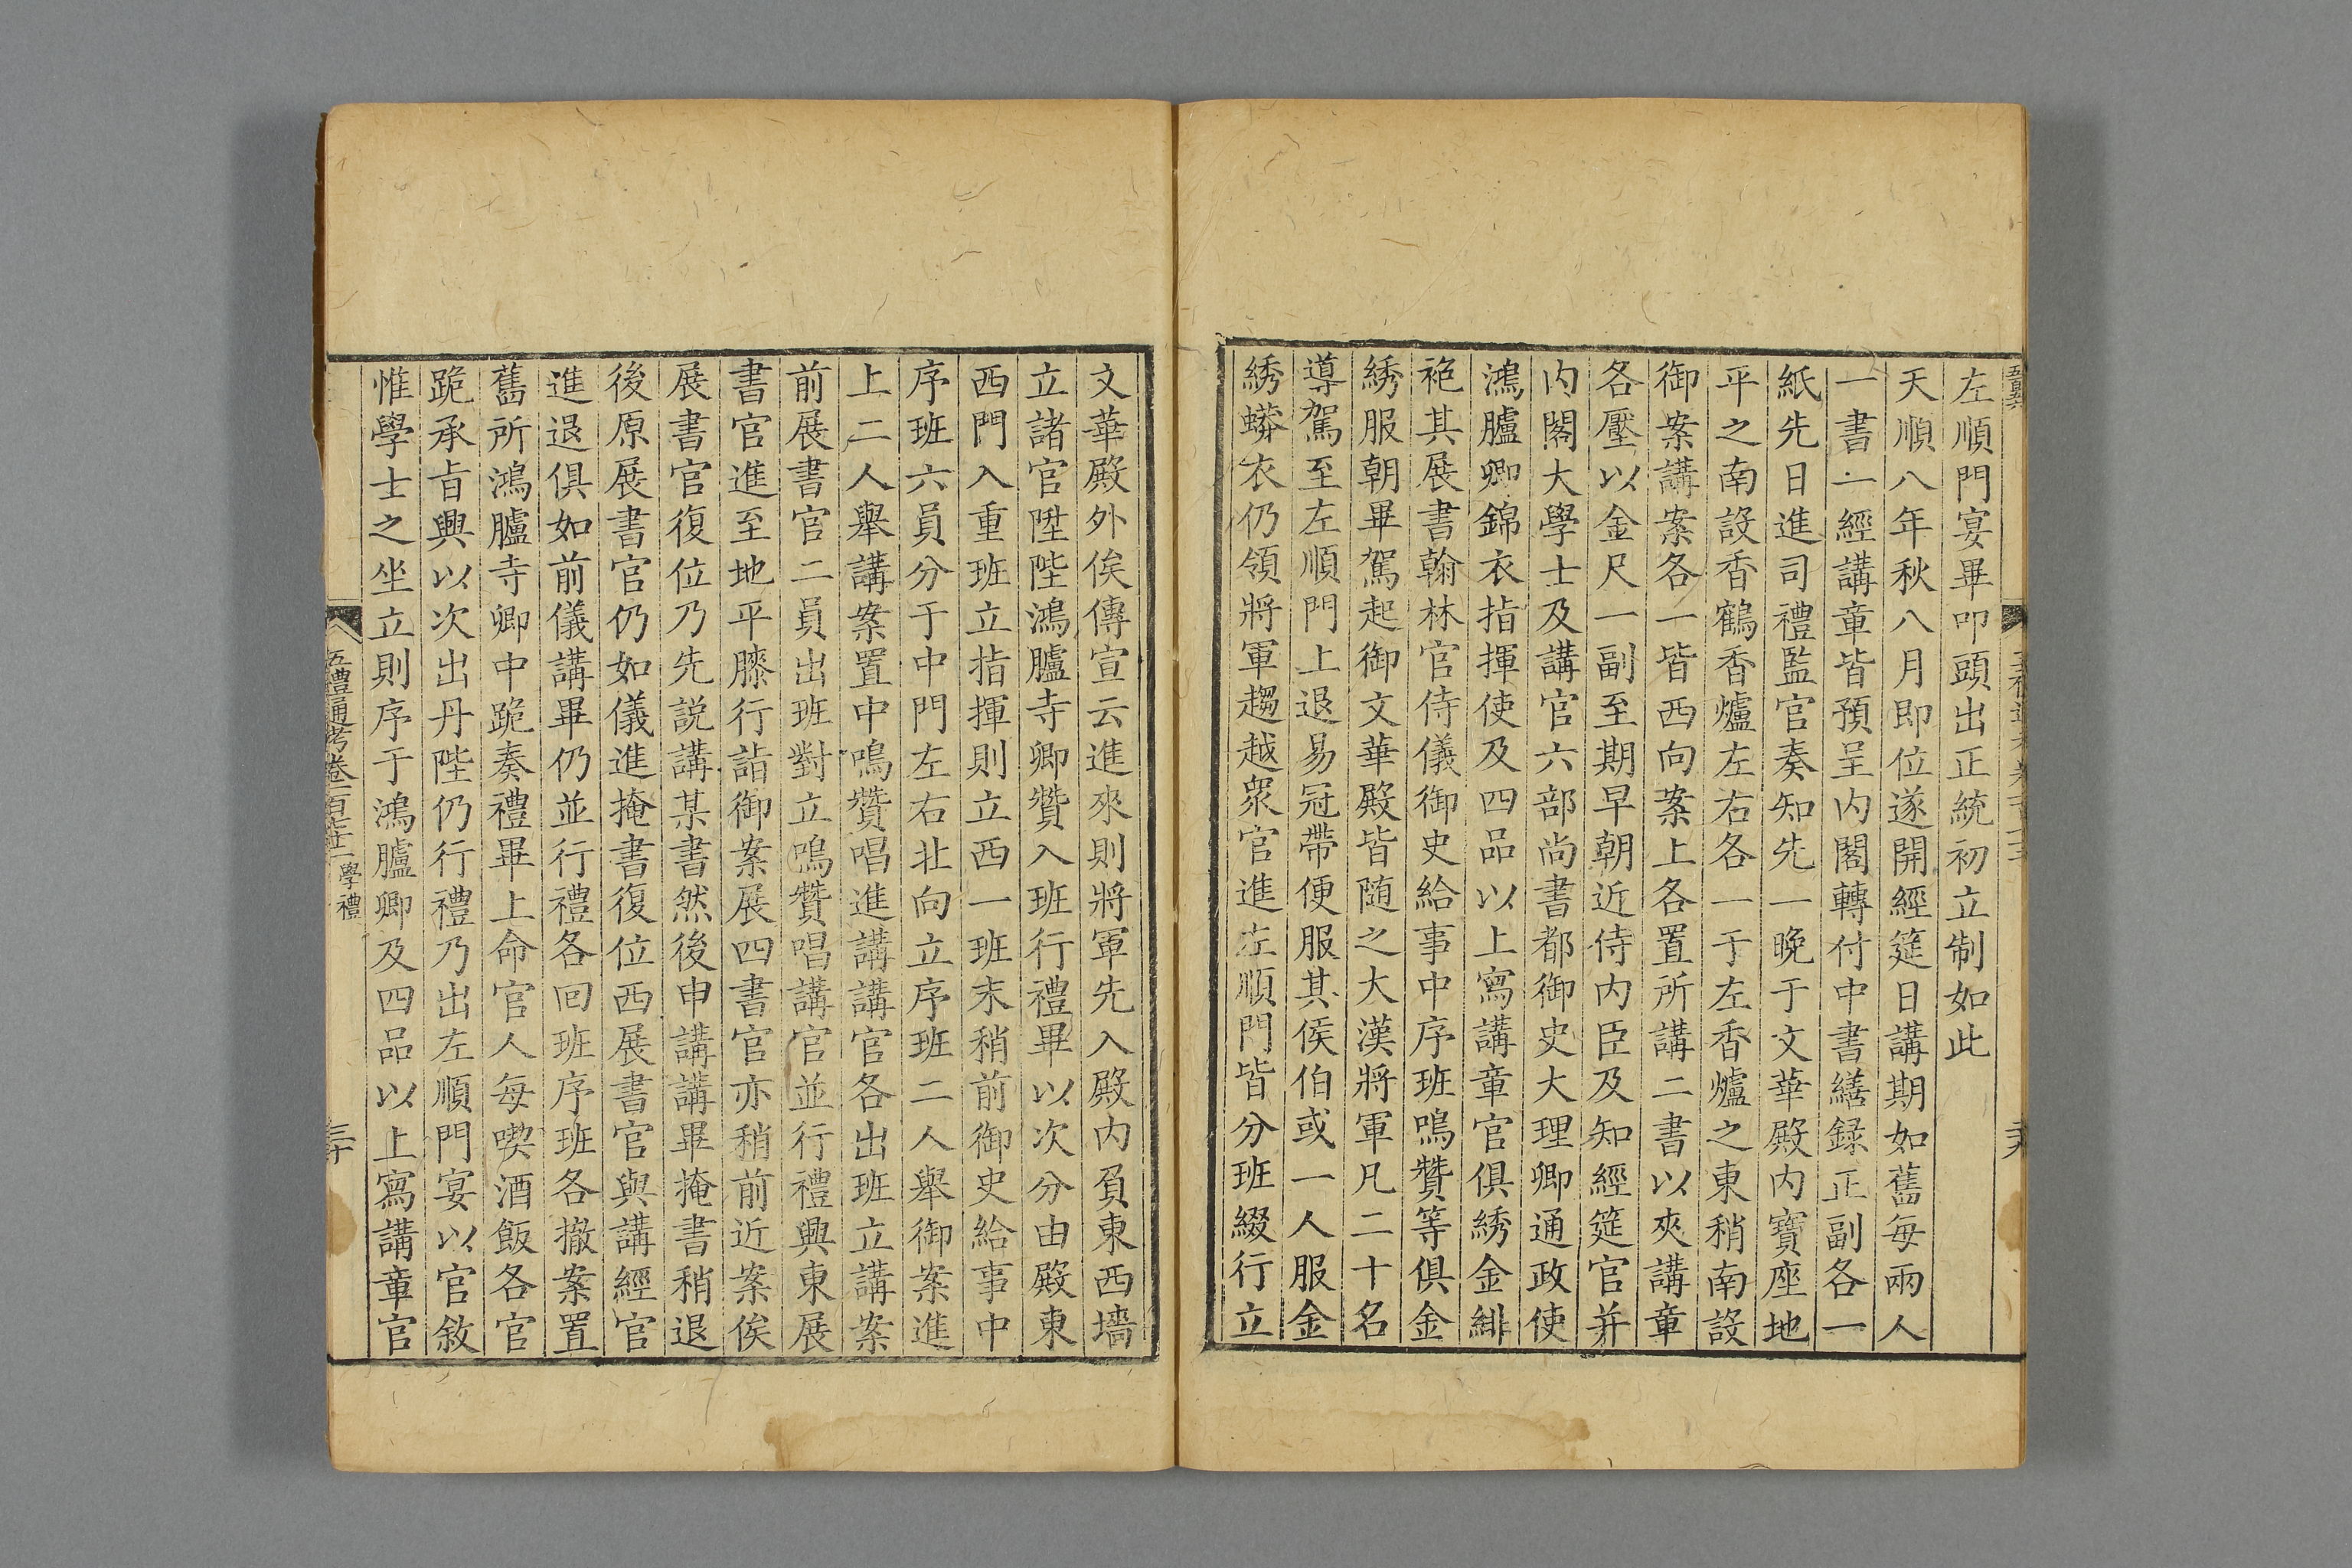 左順門宴畢叩頭出正統初立制如此
天順八年秋八月即位遂開經筵日講期如舊每兩人
一書一經講章皆預呈内閣轉付中書繕録正副各一
紙先日進司禮監官奏知先一晚于文華殿内寶座地
平之南設香鶴香爐左右各一于左香爐之東稍南設
御案講案各一皆西向案上各置所講二書以夾講章
各壓以金尺一副至期早朝近侍内臣及知經筵官并
内閣大學士及講官六部尚書都御史大理卿通政使
鴻臚卿錦衣指揮使及四品以上寫講章官俱綉金緋
袍其展書翰林官侍儀御史給事中序班鳴贊等俱金
綉服朝畢駕起御文華殿皆随之大漢將軍凡二十名
導駕至左順門上退易冠帶便服其侯伯或一人服金
綉蟒衣仍領將軍趨越衆官進左順門皆分班綴行立
文華殿外俟傳宣云進來則將軍先入殿内負東西墻
立諸官陞陛鴻臚寺卿贊入班行禮畢以次分由殿東
西門入重班立指揮則立西一班末稍前御史給事中
序班六員分于中門左右北向立序班二人舉御案進
上二人舉講案置中鳴贊唱進講講官各出班立講案
前展書官二員出班對立鳴贊唱講官並行禮興東展
書官進至地平膝行詣御案展四書官亦稍前近案俟
展書官復位乃先説講某書然後申講講畢掩書稍退
後原展書官仍如儀進掩書復位西展書官與講經官
進退俱如前儀講畢仍並行禮各回班序班各撤案置
舊所鴻臚寺卿中跪奏禮畢上命官人每喫酒飯各官
跪承旨興以次出丹陛仍行禮乃出左順門宴以官敘
惟學士之坐立則序于鴻臚卿及四品以上寫講章官
五禮通考卷一百七十二 學禮
三十